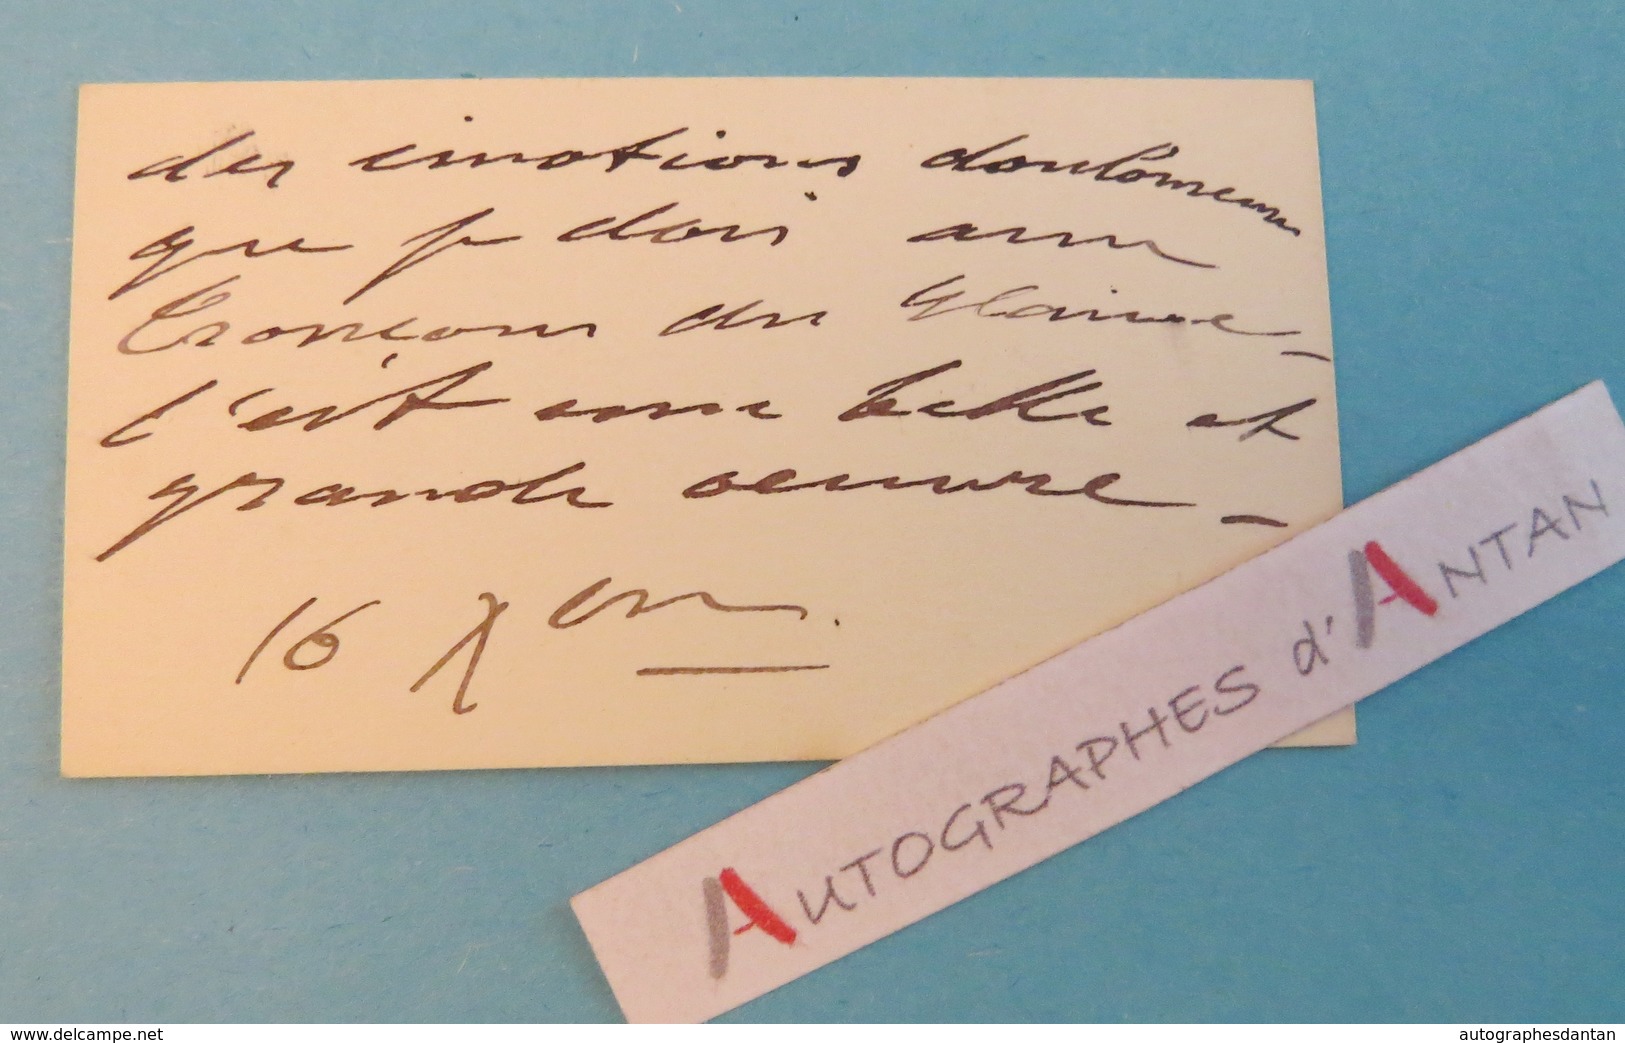 des émotions douloureuses
que je dois aux
tronçons du Glaive_
C'est une belle et
grande oeuvre_
16 Xem.
AUTOGRAPHES d'ANTAN
www.delcampe.net
autographesdantan